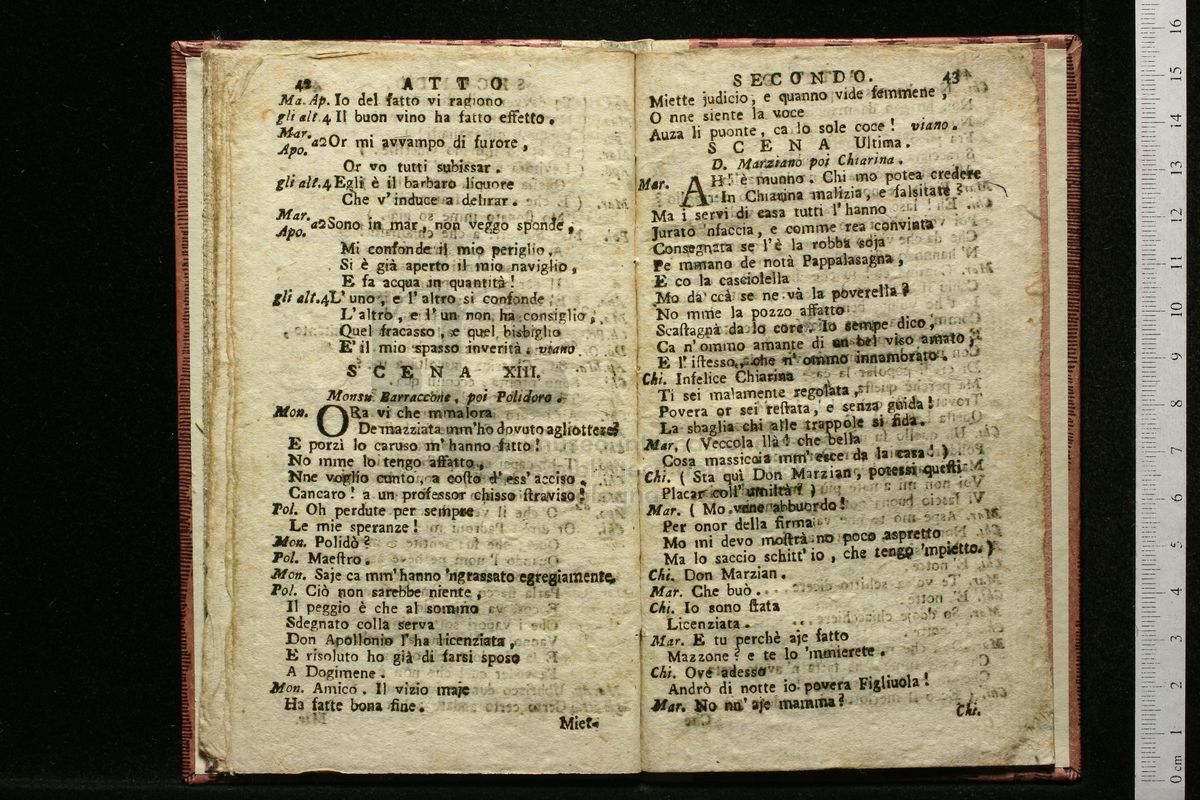 42 ATTO
Ma. Ap. Io del fatto vi ragiono
gli alt.4 Il buon vino ha fatto effetto.
Mar.
Apo. a2 Or mi avvampo di furore,
Or vo tutti subissar.
gli alt.4 Egli è il barbaro liquore
Che v'induce a delirar.
Mar.
Apo. a2 Sono in mar, non veggo sponde,
Mi confonde il mio periglio,
Si è già aperto il mio naviglio,
E fa acqua in quantità!
gli alt.4 L'uno, e l'altro si confonde,
L'altro, e l'un non ha consiglio,
Quel fracasso, e quel bisbiglio
E' il mio spasso inverità. viano.
SCENA XIII.
Monsù Barraccone, poi Polidoro.
Mon. ORa vi che mmalora
De mazziata mm'ho dovuto agliottere?
E porzì lo caruso m'hanno fatto!
No mme lo tengo affatto,
Nne voglio cunto, a costo d'ess'acciso,
Cancaro! a un professor chisso straviso!
Pol. Oh perdute per sempre
Le mie speranze!
Mon. Polidò?
Pol. Maestro.
Mon. Saje ca mm'hanno 'ngrassato egregiamente.
Pol. Ciò non sarebbe niente,
Il peggio è che al sommo
Sdegnato colla serva
Don Apollonio l'ha licenziata,
E risoluto ho già di farsi sposo
A Dogimene.
Mon. Amico. Il vizio maje
Ha fatte bona fine.
Miet-
SECONDO. 43
Miette judicio, e quanno vide femmene,
O nne siente la voce
Auza li puonte, ca lo sole coce! viano.
SCENA Ultima.
D. Marziano poi Chiarina.
Mar. AH! è munno. Chi mo potea credere
In Chiarina malizia, e falsitate?
Ma i servi di casa tutti l'hanno
Jurato 'nfaccia, e comme rea convinta
Consegnata se l'è la robba soja
Pe mmano de notà Pappalasagna,
E co la casciolella
Mo da ccà se ne và la poverella?
No mme la pozzo affatto
Scastagnà da lo core. Io sempe dico,
Ca n'ommo amante di un bel viso amato,
E l'istesso, che n'ommo innamorato.
Chi. Infelice Chiarina
Ti sei malamente regolata,
Povera or sei restata, e senza guida!
La sbaglia chi alle trappole si fida.
Mar. ( Veccola llà! che bella
Cosa massiccia mm'esce da la casa! )
Chi. ( Sta quì Don Marzian, potessi questi
Placar coll'umiltà? )
Mar. ( Mo vene abbuordo!
Per onor della firma
Mo mi devo mostrà no poco aspretto
Ma lo saccio schitt'io, che tengo 'mpietto. )
Chi. Don Marzian.
Mar. Che buò.
Chi. Io sono stata
Licenziata.
Mar. E tu perchè aje fatto
Mazzone? e te lo 'mmierete.
Chi. Ove adesso
Andrò di notte io povera Figliuola!
Mar. No nn'aje mamma?
Chi.